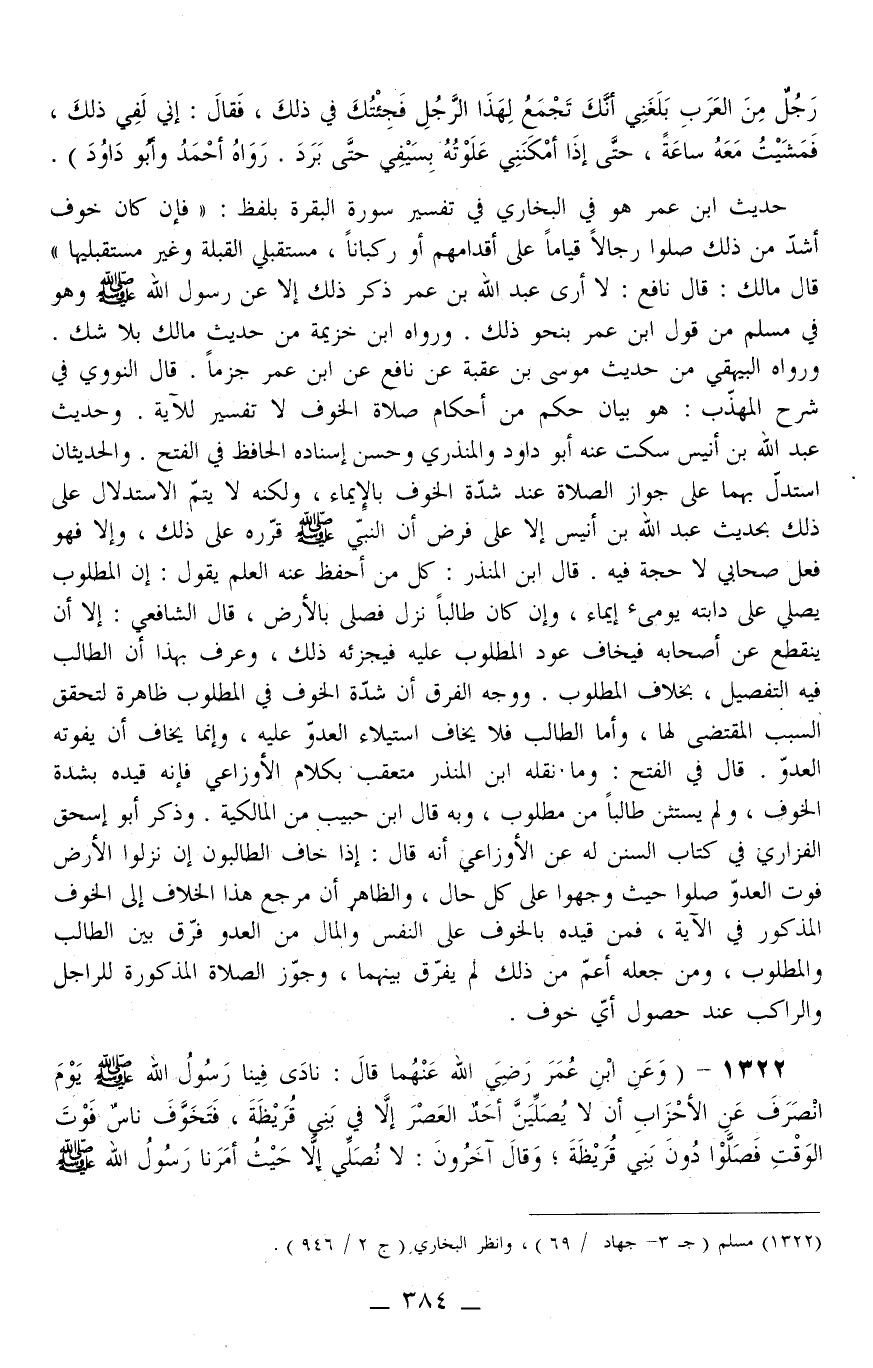 رَجُلٌ مِنَ العَرَبِ بَلَغَنِي أنَّكَ تَجْمَعُ لِهَذَا الرَّجُلِ فَجِئْتُكَ في ذلكَ ، فَقالَ : إني لَفِي ذلكَ ،
فَمَشَيْتُ مَعَهُ ساعَةً ، حتَّى إذَا أمْكَنَنِي عَلَوْتُهُ بِسَيْفِي حتَّى بَرَدَ . رَوَاهُ أحْمَدُ وأبُو دَاوُدَ ) .
حديث ابن عمر هو في البخاري في تفسير سورة البقرة بلفظ : « فإن كان خوف
أشدّ من ذلك صلوا رجالاً قياماً على أقدامهم أو ركباناً ، مستقبلي القبلة وغير مستقبليها »
قال مالك : قال نافع : لا أرى عبد الله بن عمر ذكر ذلك إلا عن رسول الله ﷺ وهو
في مسلم من قول ابن عمر بنحو ذلك . ورواه ابن خزيمة من حديث مالك بلا شك .
ورواه البيهقي من حديث موسى بن عقبة عن نافع عن ابن عمر جزماً . قال النووي في
شرح المهذّب : هو بيان حكم من أحكام صلاة الخوف لا تفسير للآية . وحديث
عبد الله بن أنيس سكت عنه أبو داود والمنذري وحسن إسناده الحافظ في الفتح . والحديثان
استدلّ بهما على جواز الصلاة عند شدّة الخوف بالإيماء ، ولكنه لا يتمّ الاستدلال على
ذلك بحديث عبد الله بن أنيس إلا على فرض أن النبيّ ﷺ قرّره على ذلك ، وإلا فهو
فعل صحابي لا حجة فيه . قال ابن المنذر : كل من أحفظ عنه العلم يقول : إن المطلوب
يصلي على دابته يومىء إيماء ، وإن كان طالباً نزل فصلى بالأرض ، قال الشافعي : إلا أن
ينقطع عن أصحابه فيخاف عود المطلوب عليه فيجزئه ذلك ، وعرف بهذا أن الطالب
فيه التفصيل ، بخلاف المطلوب . ووجه الفرق أن شدّة الخوف في المطلوب ظاهرة لتحقق
السبب المقتضى لها ، وأما الطالب فلا يخاف استيلاء العدوّ عليه ، وإنما يخاف أن يفوته
العدوّ . قال في الفتح : وما نقله ابن المنذر متعقب بكلام الأوزاعي فإنه قيده بشدة
الخوف ، ولم يستثن طالباً من مطلوب ، وبه قال ابن حبيب من المالكية . وذكر أبو إسحق
الفزاري في كتاب السنن له عن الأوزاعي أنه قال : إذا خاف الطالبون إن نزلوا الأرض
فوت العدوّ صلوا حيث وجهوا على كل حال ، والظاهر أن مرجع هذا الخلاف إلى الخوف
المذكور في الآية ، فمن قيده بالخوف على النفس والمال من العدو فرّق بين الطالب
والمطلوب ، ومن جعله أعمّ من ذلك لم يفرّق بينهما ، وجوّز الصلاة المذكورة للراجل
والراكب عند حصول أيّ خوف .
١٣٢٢ – ( وَعَنِ ابْنِ عُمَرَ رَضِيَ الله عَنْهُما قالَ : نادَى فِينا رَسُولُ الله ﷺ يَوْمَ
انْصَرَفَ عَنِ الأحْزَابِ أن لا يُصَلِّيَنَّ أحَدٌ العَصْرَ إلَّا في بَنِي قُرَيْظَةَ ، فَتَخَوَّفَ ناسٌ فَوْتَ
الوَقْتِ فَصَلَّوْا دُونَ بَنِي قُرَيْظَةَ ؛ وَقالَ آخَرُونَ : لا نُصَلِّي إلَّا حَيْثُ أمَرَنا رَسُولُ الله ﷺ
(١٣٢٢) مسلم ( جـ ٣– جهاد / ٦٩ ) ، وانظر البخاري ( ج ٢ / ٩٤٦ ) .
— ٣٨٤ —